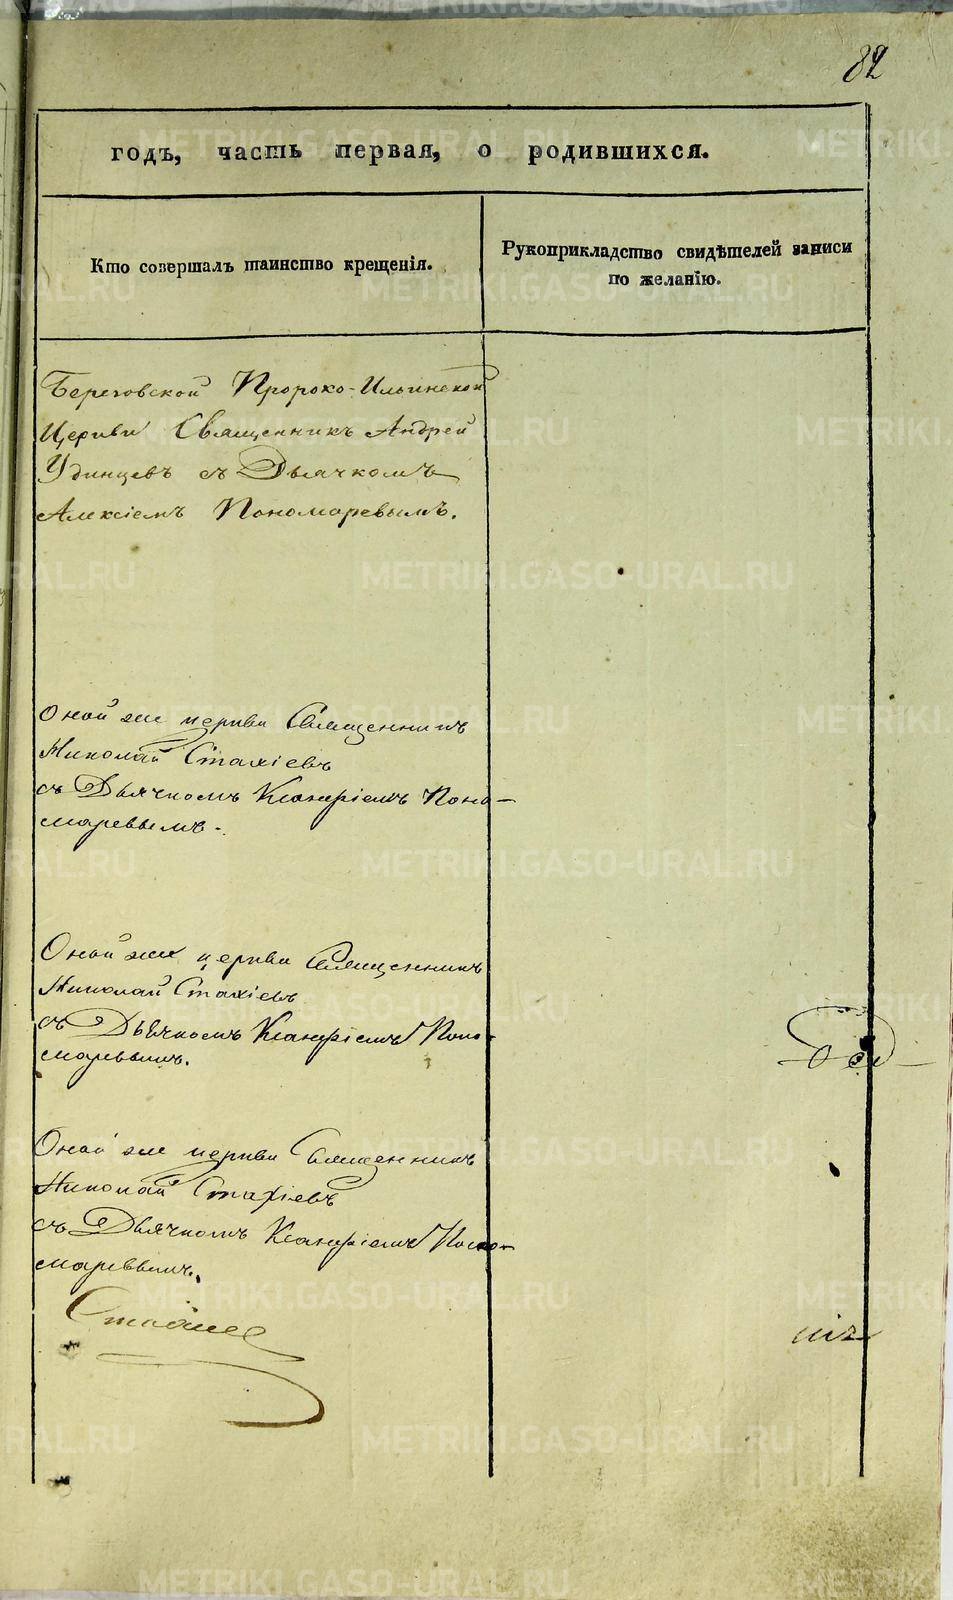 82
годъ, часть первая, о родившихся.
Кто совершалъ таинство крещенія.
Рукоприкладство свидѣтелей записи
по желанію.
Береговской Пророко-Ильинской
Церкви Священникъ Андрей
Удинцевъ съ Дьячкомъ
Алексіемъ Пономаревымъ.
Оной же церкви Священникъ
Николай Стахіевъ
съ Дьячкомъ Поно-
маревымъ.
Оной же церкви Священникъ
Николай Стахіевъ
съ Дьячкомъ Поно-
маревымъ.
Оной же церкви Священникъ
Николай Стахіевъ
съ Дьячкомъ Поно-
маревымъ.
METRIKI.GASO-URAL.RU